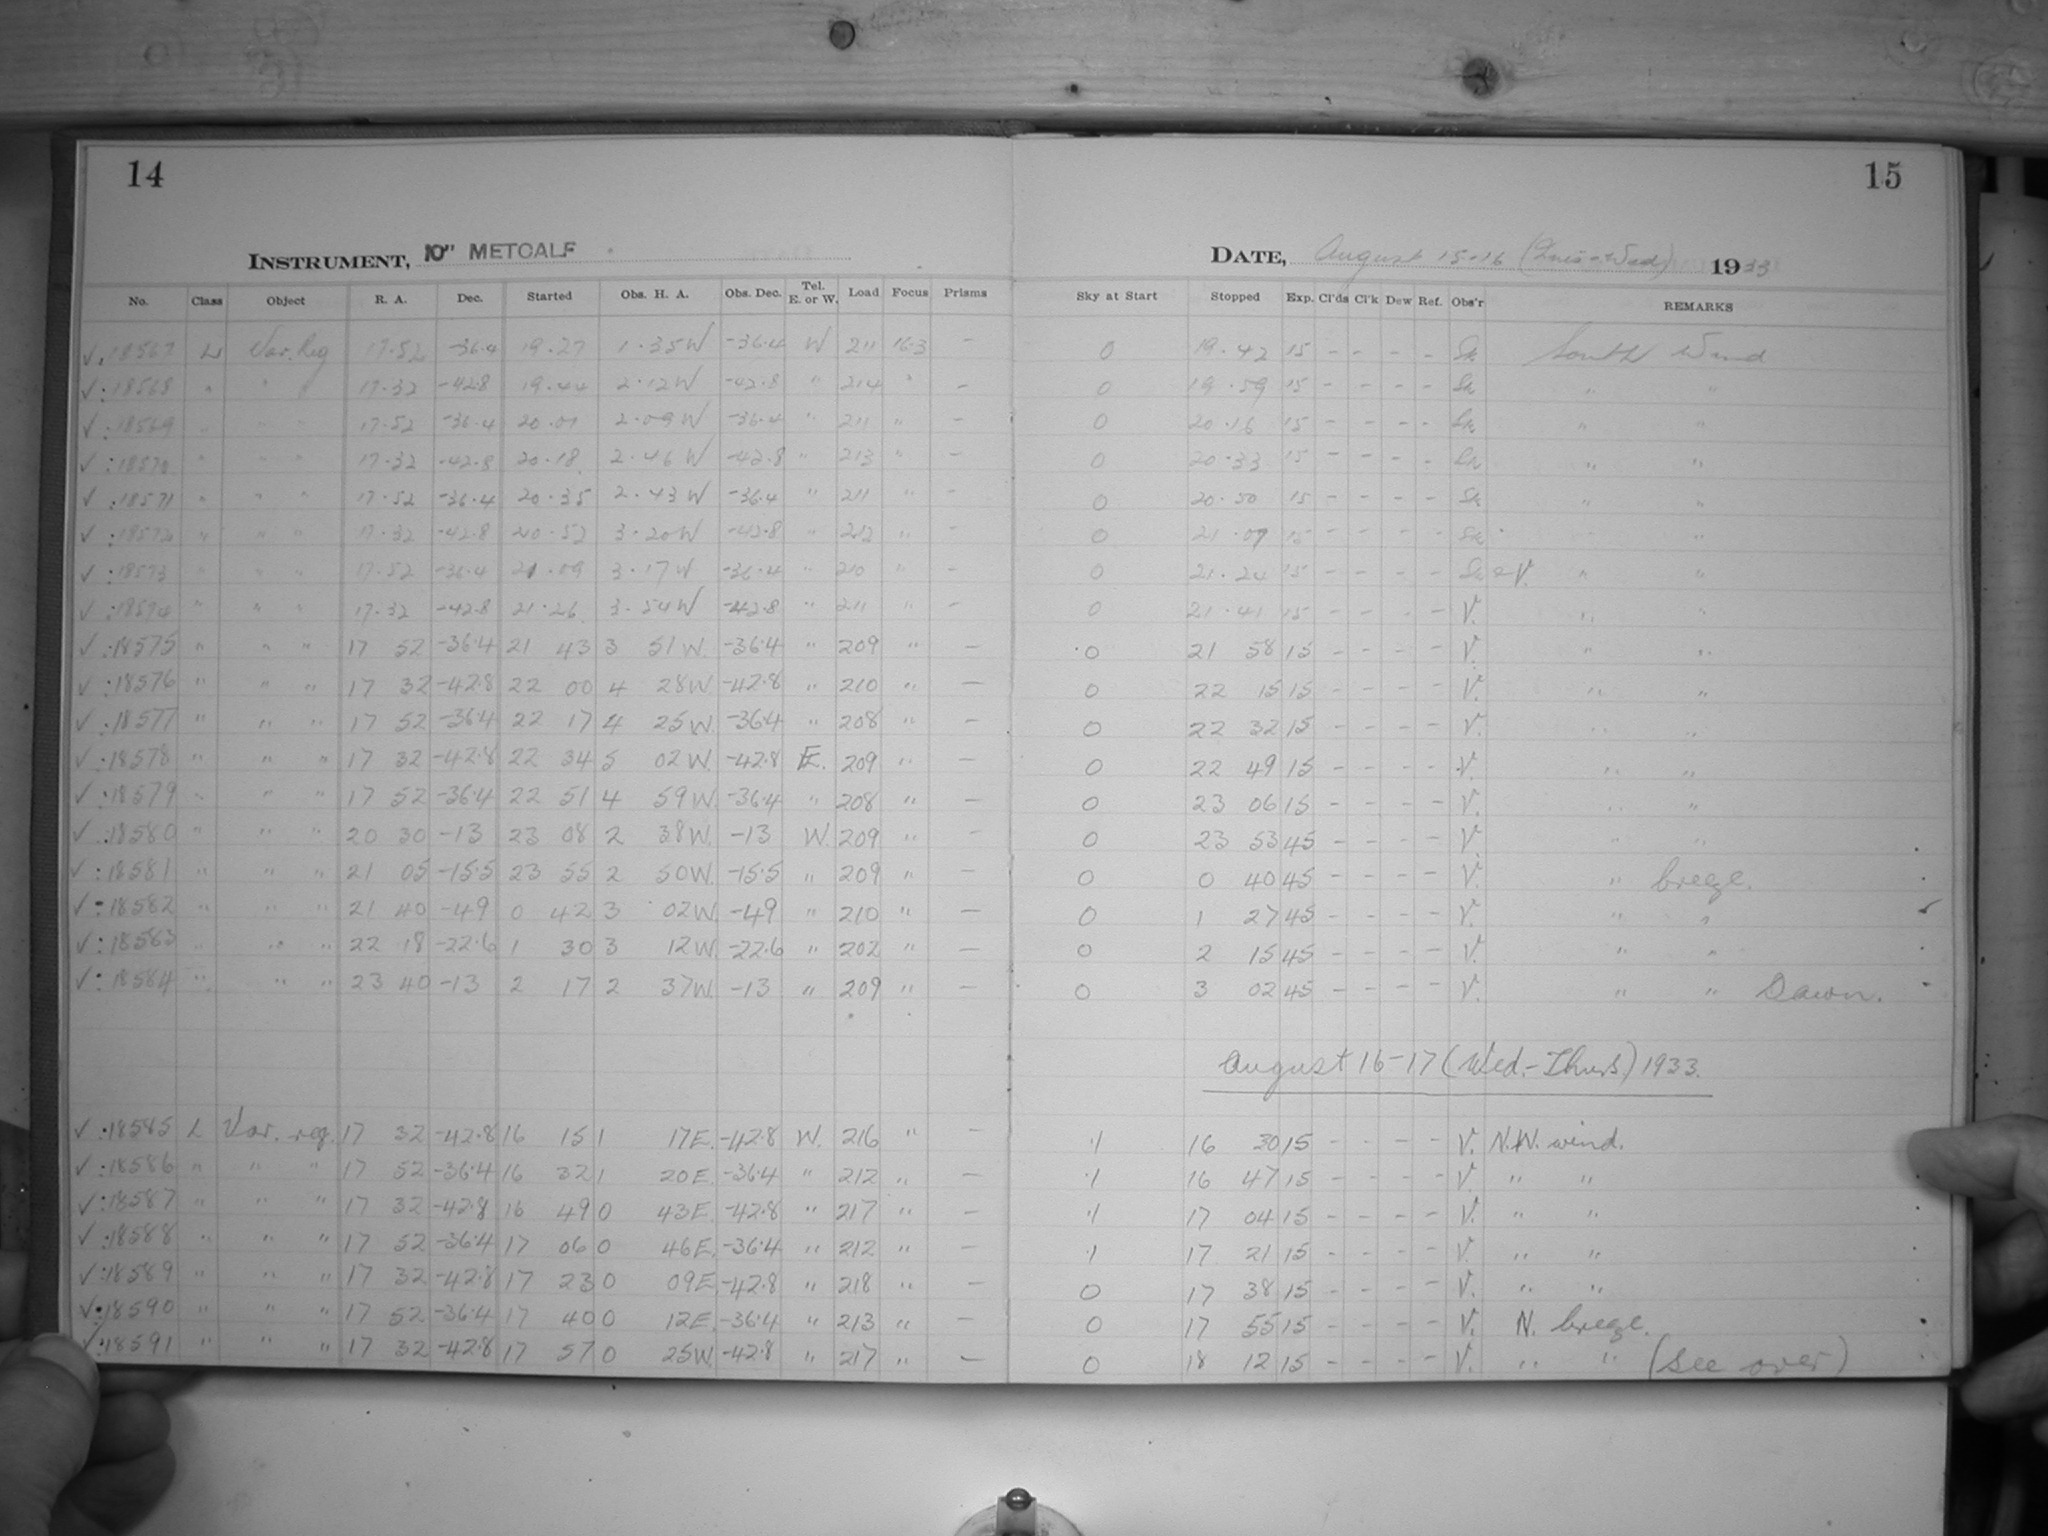 14
15
INSTRUMENT, 10" METCALF
DATE, August 15-16 (Tues-Wed) 1933
No. Class Object R. A. Dec. Started Obs. H. A. Obs. Dec. Tel. E. or W. Load Focus Prisms Sky at Start Stopped Exp. Cl'ds Cl'k Dew Ref. Obs'r REMARKS
✓ 18567 L Var. Reg 17.52 -36.4 19.27 1.35W -36.4 W 211 16.3 - 0 19.42 15 - - - - Sk. South Wind
✓: 18568 " " " 17.32 -42.8 19.44 2.12W -42.8 " 214 " - 0 19.59 15 - - - - Sk " "
✓: 18569 " " " 17.52 -36.4 20.01 2.09W -36.4 " 211 " - 0 20.16 15 - - - - Sk " "
✓: 18570 " " " 17.32 -42.8 20.18 2.46W -42.8 " 213 " - 0 20.33 15 - - - - Sk " "
✓: 18571 " " " 17.52 -36.4 20.35 2.43W -36.4 " 211 " - 0 20.50 15 - - - - Sk " "
✓: 18572 " " " 17.32 -42.8 20.52 3.20W -42.8 " 212 " - 0 21.07 15 - - - - Sk "
✓: 18573 " " " 17.52 -36.4 21.09 3.17W -36.4 " 210 " - 0 21.24 15 - - - - Sk & V. " "
✓: 18574 " " " 17.32 -42.8 21.26 3.54W -42.8 " 211 " - 0 21.41 15 - - - - V. " "
✓: 18575 " " " 17 52 -36.4 21 43 3 51W. -36.4 " 209 " - 0 21 58 15 - - - - V. " "
✓: 18576 " " " 17 32 -42.8 22 00 4 28W. -42.8 " 210 " - 0 22 15 15 - - - - V. " "
✓: 18577 " " " 17 52 -36.4 22 17 4 25W. -36.4 " 208 " - 0 22 32 15 - - - - V. " "
✓: 18578 " " " 17 32 -42.8 22 34 5 02W. -42.8 E. 209 " - 0 22 49 15 - - - - V. " "
✓: 18579 " " " 17 52 -36.4 22 51 4 59W. -36.4 " 208 " - 0 23 06 15 - - - - V. " "
✓: 18580 " " " 20 30 -13 23 08 2 38W. -13 W. 209 " - 0 23 53 45 - - - - V. " "
✓: 18581 " " " 21 05 -15.5 23 55 2 50W. -15.5 " 209 " - 0 0 40 45 - - - - V. " breeze.
✓: 18582 " " " 21 40 -49 0 42 3 02W. -49 " 210 " - 0 1 27 45 - - - - V. " "
✓: 18583 " " " 22 18 -22.6 1 30 3 12W. -22.6 " 202 " - 0 2 15 45 - - - - V. " "
✓: 18584 " " " 23 40 -13 2 17 2 37W. -13 " 209 " - 0 3 02 45 - - - - V. " " Dawn.
August 16-17 (Wed.-Thurs.) 1933.
✓: 18585 L Var. reg. 17 32 -42.8 16 15 1 17E. -42.8 W. 216 " - .1 16 30 15 - - - - V. N.W. wind.
✓: 18586 " " " 17 52 -36.4 16 32 1 20E. -36.4 " 212 " - .1 16 47 15 - - - - V. " "
✓: 18587 " " " 17 32 -42.8 16 49 0 43E. -42.8 " 217 " - .1 17 04 15 - - - - V. " "
✓: 18588 " " " 17 52 -36.4 17 06 0 46E. -36.4 " 212 " - .1 17 21 15 - - - - V. " "
✓: 18589 " " " 17 32 -42.8 17 23 0 09E. -42.8 " 218 " - 0 17 38 15 - - - - V. " "
✓: 18590 " " " 17 52 -36.4 17 40 0 12E. -36.4 " 213 " - 0 17 55 15 - - - - V. N. breeze.
✓: 18591 " " " 17 32 -42.8 17 57 0 25W. -42.8 " 217 " - 0 18 12 15 - - - - V. " " (see over)